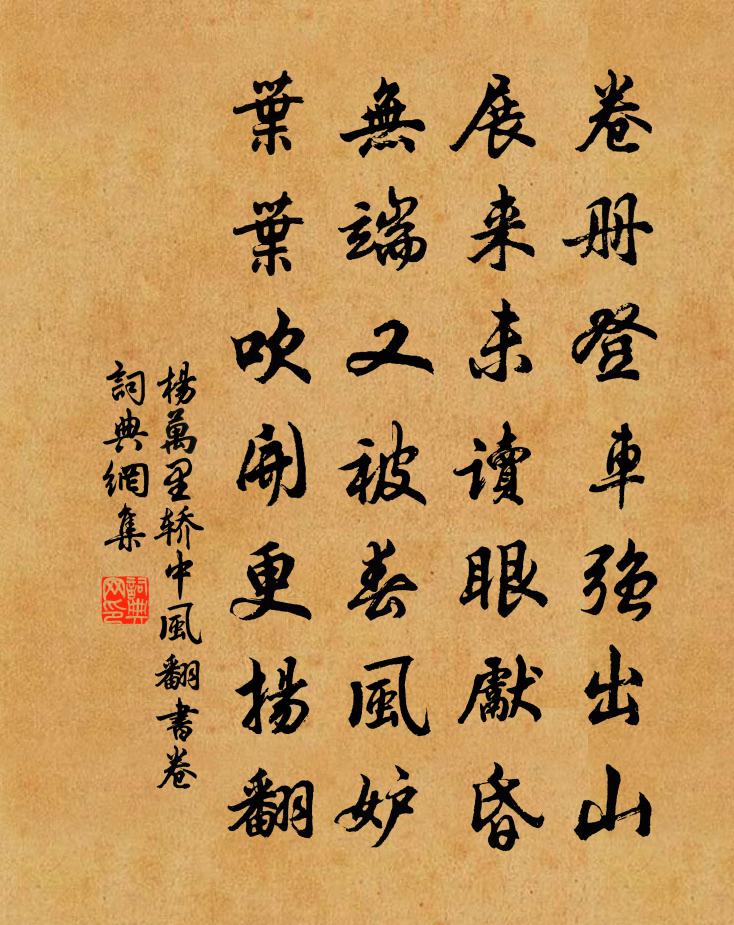 卷册登車強出山
展来未讀眼獻昏
無端又被春風妒
葉葉吹開更揚翻
楊萬里轿中風翻書卷
詞典網集
詞典网印